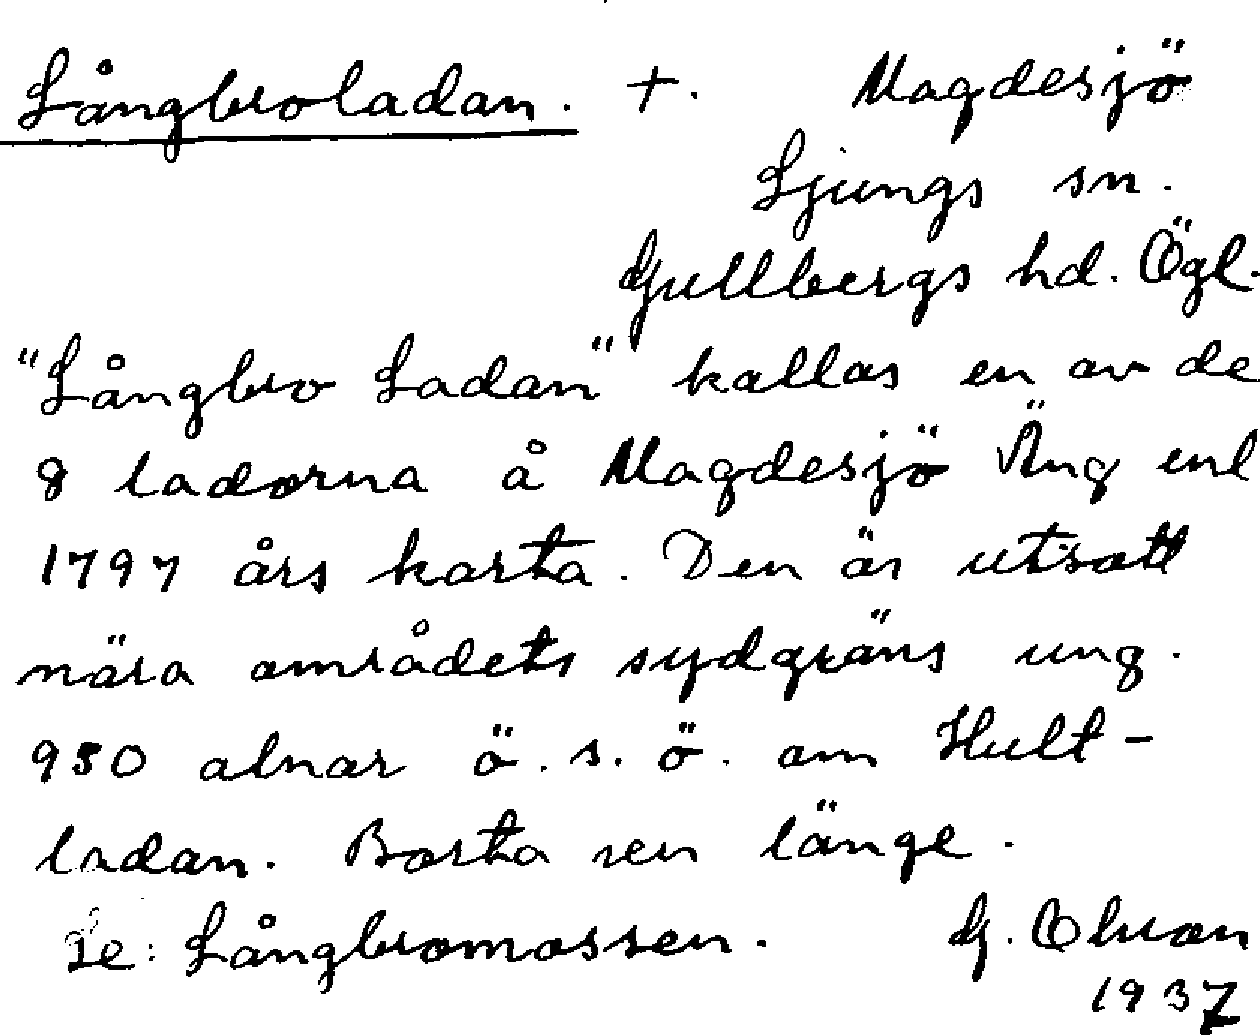 Långbroladan. +. Magdesjö
Ljungs sn.
Gullbergs hd. Ögl.
"Långbro Ladan" kallas en av de
8 ladorna å Magdesjö Äng enl
1797 års karta. Den är utsatt
nära områdets sydgräns ung.
950 alnar ö. s. ö. om Hult-
ladan. Borta sen länge.
Se: Långbromossen. G. Olson
1937